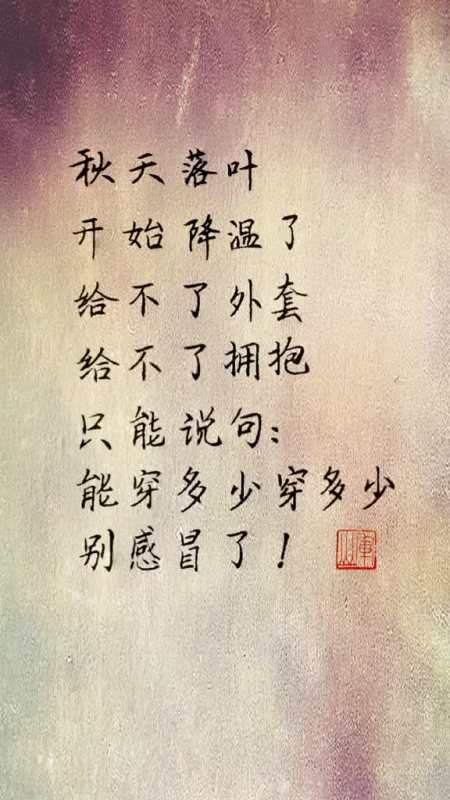 秋天落叶
开始降温了
给不了外套
给不了拥抱
只能说句：
能穿多少穿多少
别感冒了！